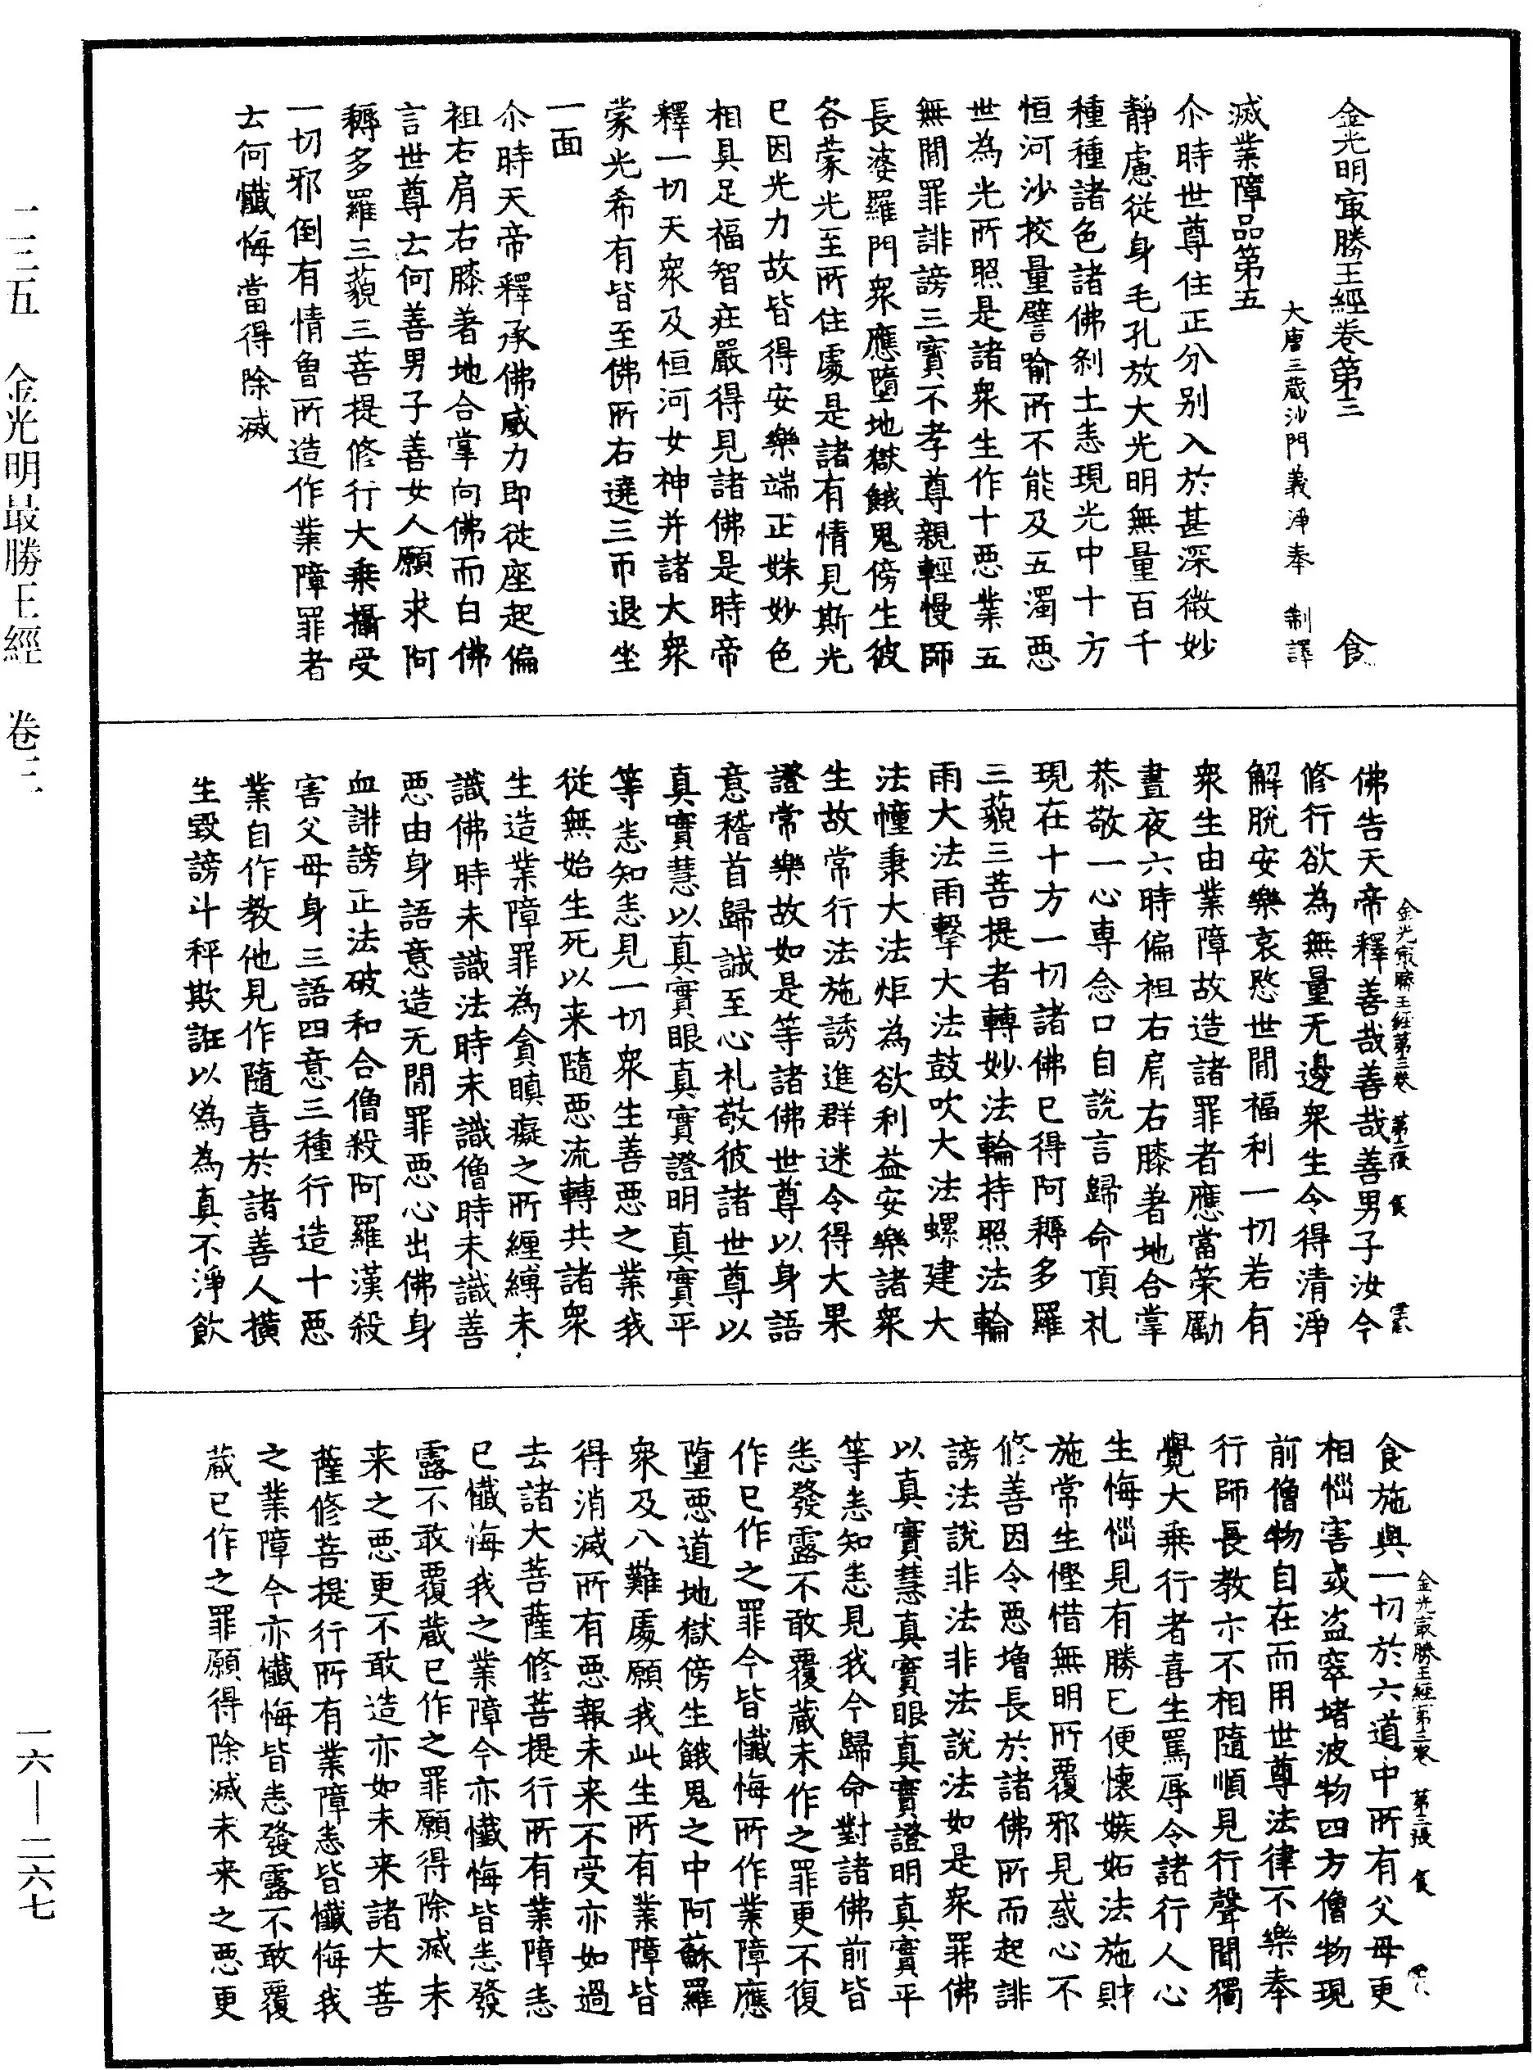 金光明冣勝王經卷第三　食
大唐三蔵沙門義淨奉　制譯
滅業障品第五
尒時世尊住正分別入於甚深微妙
靜慮從身毛孔放大光明無量百千
種種諸色諸佛剎土悉現光中十方
恒河沙挍量譬喻所不能及五濁惡
世為光所照是諸衆生作十惡業五
無間罪誹謗三寶不孝尊親輕慢師
長婆羅門衆應墮地獄餓鬼傍生彼
各蒙光至所住處是諸有情見斯光
已因光力故皆得安樂端正姝妙色
相具足福智莊嚴得見諸佛是時帝
釋一切天衆及恒河女神并諸大衆
蒙光希有皆至佛所右遶三帀退坐
一面
尒時天帝釋承佛威力即從座起偏
袒右肩右膝著地合掌向佛而白佛
言世尊云何善男子善女人願求阿
耨多羅三藐三菩提修行大乗攝受
一切邪倒有情曾所造作業障罪者
云何懺悔當得除滅
金光冣勝王經第三卷　第二張　食
佛告天帝釋善哉善哉善男子汝今
修行欲為無量无邊衆生令得清淨
解脫安樂哀愍世間福利一切若有
衆生由業障故造諸罪者應當策勵
晝夜六時偏袒右肩右膝著地合掌
恭敬一心専念口自說言歸命頂礼
現在十方一切諸佛已得阿耨多羅
三藐三菩提者轉妙法輪持照法輪
雨大法雨擊大法鼓吹大法螺建大
法幢秉大法炬為欲利益安樂諸衆
生故常行法施誘進群迷令得大果
證常樂故如是等諸佛世尊以身語
意稽首歸誠至心礼敬彼諸世尊以
真實慧以真實眼真實證明真實平
等悉知悉見一切衆生善惡之業我
從無始生死以来隨惡流轉共諸衆
生造業障罪為貪瞋癡之所纏縛未
識佛時未識法時未識僧時未識善
惡由身語意造无間罪惡心出佛身
血誹謗正法破和合僧殺阿羅漢殺
害父母身三語四意三種行造十惡
業自作教他見作隨喜於諸善人横
生毀謗斗秤欺誑以偽為真不淨飲
金光冣勝王經第三卷　第三張　食
食施與一切於六道中所有父母更
相惱害或盜窣堵波物四方僧物現
前僧物自在而用世尊法律不樂奉
行師長教亦不相隨順見行聲聞獨
覺大乗行者喜生罵辱令諸行人心
生悔惱見有勝已便懷嫉妬法施財
施常生慳惜無明所覆邪見惑心不
修善因令惡増長於諸佛所而起誹
謗法說非法非法說法如是衆罪佛
以真實慧真實眼真實證明真實平
等悉知悉見我今歸命對諸佛前皆
悉發露不敢覆蔵未作之罪更不復
作已作之罪今皆懺悔所作業障應
墮惡道地獄傍生餓鬼之中阿蘇羅
衆及八難處願我此生所有業障皆
得消滅所有惡報未來不受亦如過
去諸大菩薩修菩提行所有業障悉
已懺悔我之業障今亦懺悔皆悉發
露不敢覆蔵已作之罪願得除滅未
来之惡更不敢造亦如未来諸大菩
薩修菩提行所有業障悉皆懺悔我
之業障今亦懺悔皆悉發露不敢覆
蔵已作之罪願得除滅未来之惡更
二三五　金光明最勝王經　卷三
一六—二六七